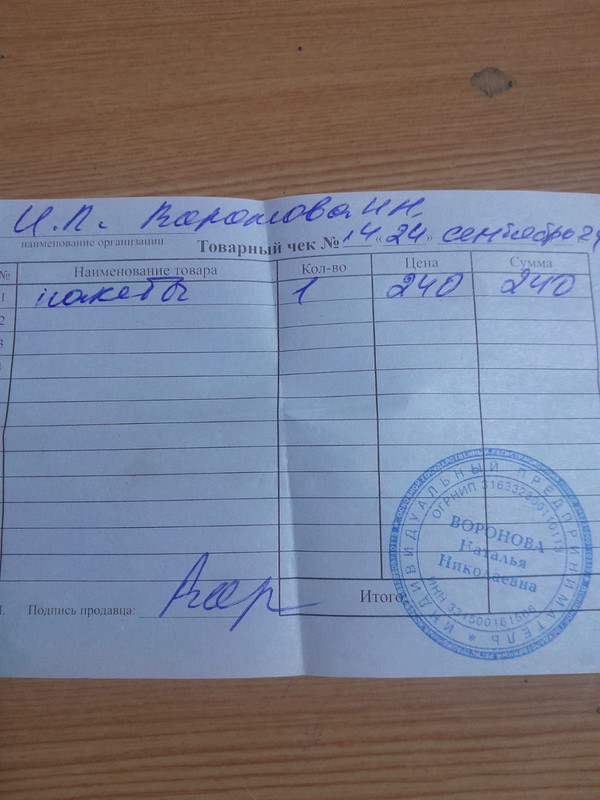 И.П. Воронова Н.Н.
наименование организации
Товарный чек № 14 «24» сентября 24
№ Наименование товара Кол-во Цена Сумма
1 пакеты 1 240 240
2
3
Подпись продавца: Вор
Итого:
ИНДИВИДУАЛЬНЫЙ ПРЕДПРИНИМАТЕЛЬ
ОГРНИП
ВОРОНОВА
Наталья
Николаевна
ИНН